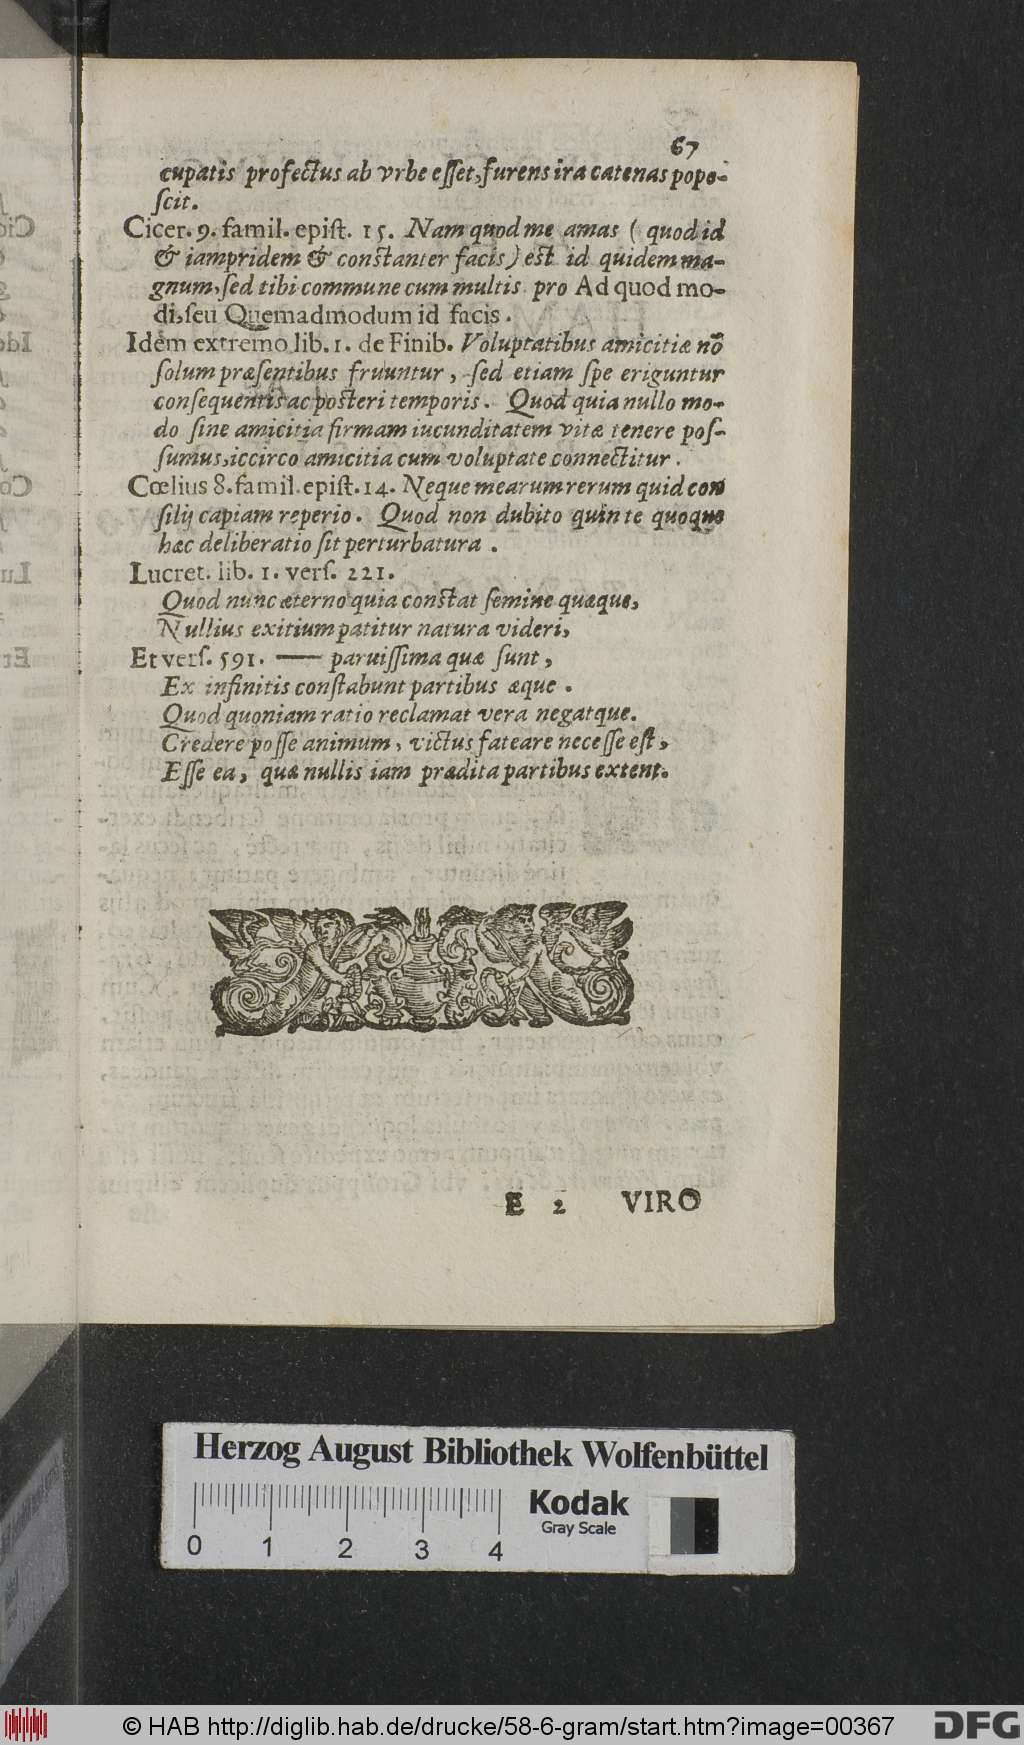 67
cupatis profectus ab vrbe esset, furens ira catenas popo-
scit.
Cicer. 9. famil. epist. 15. Nam quod me amas ( quod id
& iampridem & constanter facis ) est id quidem ma-
gnum, sed tibi commune cum multis pro Ad quod mo-
di, seu Quemadmodum id facis.
Idem extremo lib. 1. de Finib. Voluptatibus amicitiæ nō
solum præsentibus fruuntur, sed etiam spe eriguntur
consequentis ac posteri temporis. Quod quia nullo mo-
do sine amicitia firmam iucunditatem vitæ tenere pos-
sumus, iccirco amicitia cum voluptate connectitur.
Cœlius 8. famil. epist. 14. Neque mearum rerum quid con
silij capiam reperio. Quod non dubito quin te quoque
hæc deliberatio sit perturbatura.
Lucret. lib. 1. vers. 221.
Quod nunc æterno quia constat semine quæque,
Nullius exitium patitur natura videri,
Et vers. 591. — paruissima quæ sunt,
Ex infinitis constabunt partibus æque.
Quod quoniam ratio reclamat vera negatque.
Credere posse animum, victus fateare necesse est,
Esse ea, quæ nullis iam prædita partibus extent.
E 2 VIRO
Herzog August Bibliothek Wolfenbüttel
Kodak
Gray Scale
0 1 2 3 4
© HAB http://diglib.hab.de/drucke/58-6-gram/start.htm?image=00367
DFG